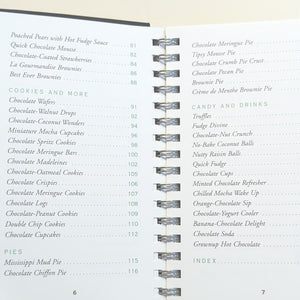 Poached Pears with Hot Fudge Sauce 81
Quick Chocolate Mousse 82
Chocolate-Coated Strawberries 84
La Gourmandise Brownies 86
Best Ever Brownies 88
COOKIES AND MORE
Chocolate Wafers 91
Chocolate-Walnut Drops 92
Chocolate-Coconut Wonders 94
Miniature Mocha Cupcakes 96
Chocolate Spritz Cookies 98
Chocolate Meringue Bars 100
Chocolate Madeleines 102
Chocolate-Oatmeal Cookies 105
Chocolate Crispies 106
Chocolate Meringue Cookies 107
Chocolate Logs 108
Chocolate-Peanut Cookies 109
Double Chip Cookies 110
Chocolate Cupcakes 112
PIES
Mississippi Mud Pie 115
Chocolate Chiffon Pie 116
6
Chocolate Meringue Pie
Tipsy Mousse Pie
Chocolate Crumb Pie Crust
Chocolate Pecan Pie
Brownie Pie
Crème de Menthe Brownie Pie
CANDY AND DRINKS
Truffles
Fudge Divine
Chocolate-Nut Crunch
No-Bake Coconut Balls
Nutty Raisin Balls
Quick Fudge
Chocolate Cups
Minted Chocolate Refresher
Chilled Mocha Wake Up
Orange-Chocolate Sip
Chocolate-Yogurt Cooler
Banana-Chocolate Delight
Chocolate Soda
Grownup Hot Chocolate
INDEX
7